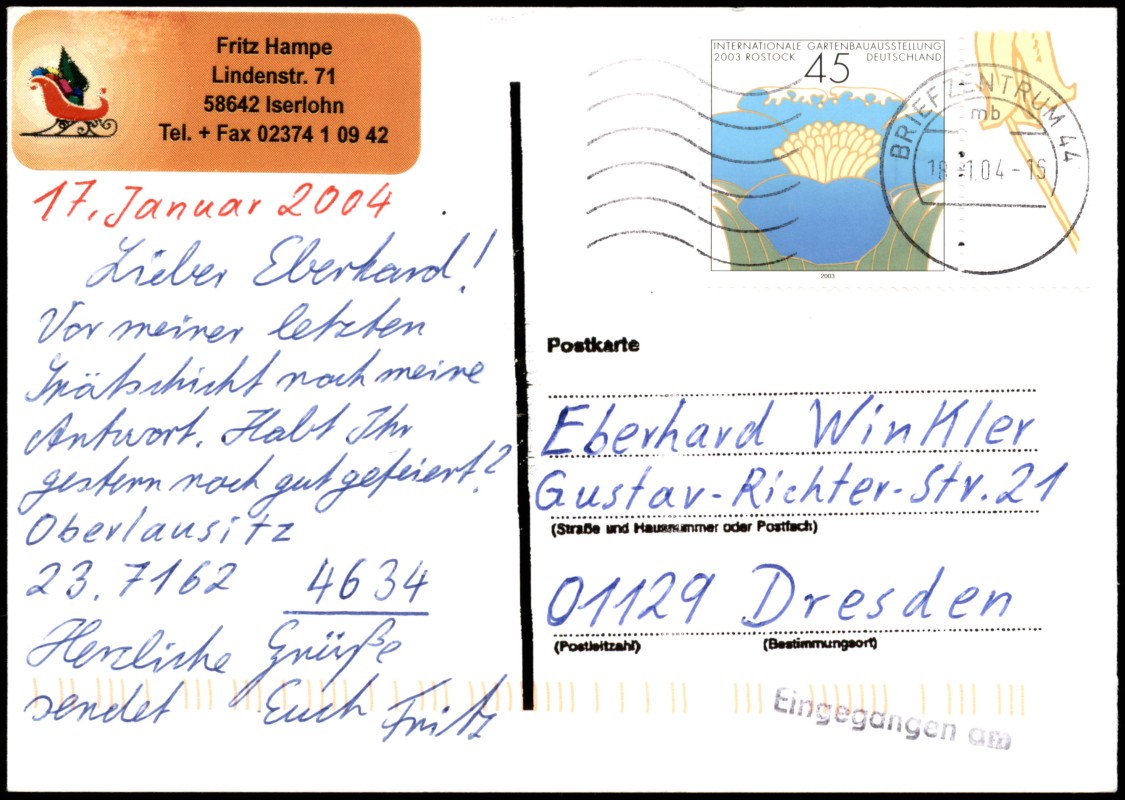 Fritz Hampe
Lindenstr. 71
58642 Iserlohn
Tel. + Fax 02374 1 09 42
17. Januar 2004
Lieber Eberhard!
Vor meiner letzten
Spätschicht noch meine
Antwort. Habt Ihr
gestern noch gut gefeiert?
Oberlausitz
23.7162 4634
Herzliche Grüße
sendet Euch Fritz
INTERNATIONALE GARTENBAUAUSSTELLUNG
2003 ROSTOCK 45 DEUTSCHLAND
2003
BRIEFZENTRUM 44
mb
18.-1.04-16
Postkarte
Eberhard Winkler
Gustav-Richter-Str. 21
(Straße und Hausnummer oder Postfach)
01129 Dresden
(Postleitzahl) (Bestimmungsort)
Eingegangen am